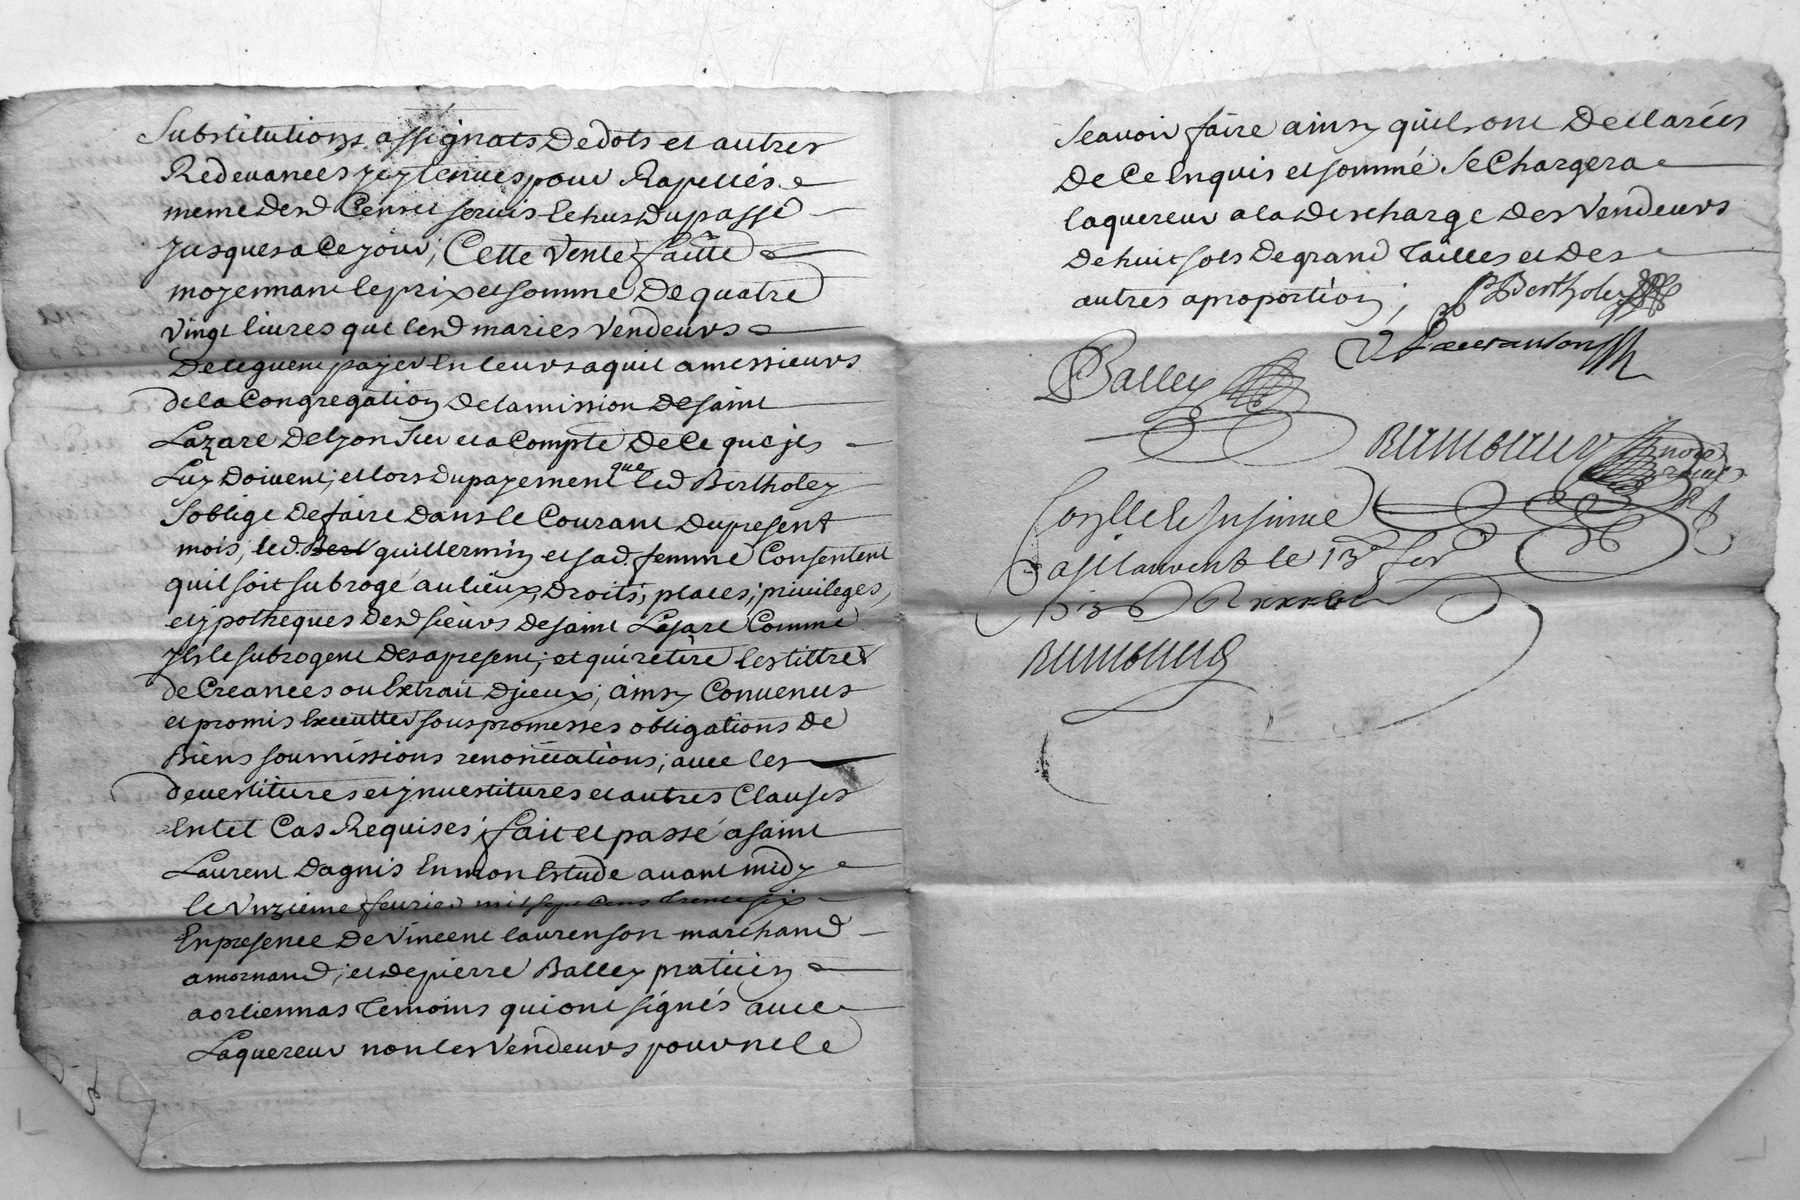 Substitutions assignats Dedots et autres
Redevances jcy tenües pour Rapellés
meme desd Cens et servis Echus Du passé
jusques a Ce jour; Cette Vente faitte
moyennant le prix et somme De quatre
Vingt livres que lesd maries Vendeurs
Deleguent payer En leurs aquit a messieurs
de la Congregation De la mission De saint
Lazare De lyon Sur et a Compte De Ce que jls
Luy Doivent; et lors Du payement que led Bertholey
Soblige De faire Dans le Courant Du present
mois, led. guillermin et sad. femme Consentent
quil soit subrogé au lieux, Droits, places, privileges,
et ypotheques Desd sieurs De saint Lasare Comme
jls le subrogent Des a present; et qui retire les tittres
de Creances ou Extrait D jceux; ainsy Convenus
et promis Executter sous promesses obligations De
Biens soumissions renonciations, avec les
devestitures et jnvestitures et autres Clauses
En tel Cas Requises; fait et passé a saint
Laurent Dagnis En mon Estude avant midy
le Vnzieme fevrier mil sept Cens Trente six
En presence De Vincent laurenson marchand
a mornand; et de pierre Balley praticien
a orliennas Temoins qui ont signés avec
Laquereur non les Vendeurs pour ne le
Scavoir faire ainsy quils ont Declarées
De Ce Enquis et sommé Se Chargera
laquereur a la Descharge Des Vendeurs
De huit sols De grand Tailles et Des
autres a proportion;
Bertholey
V Lauranson
Balley
Conlle et Insinué
a St laurent le 13e fev
1736